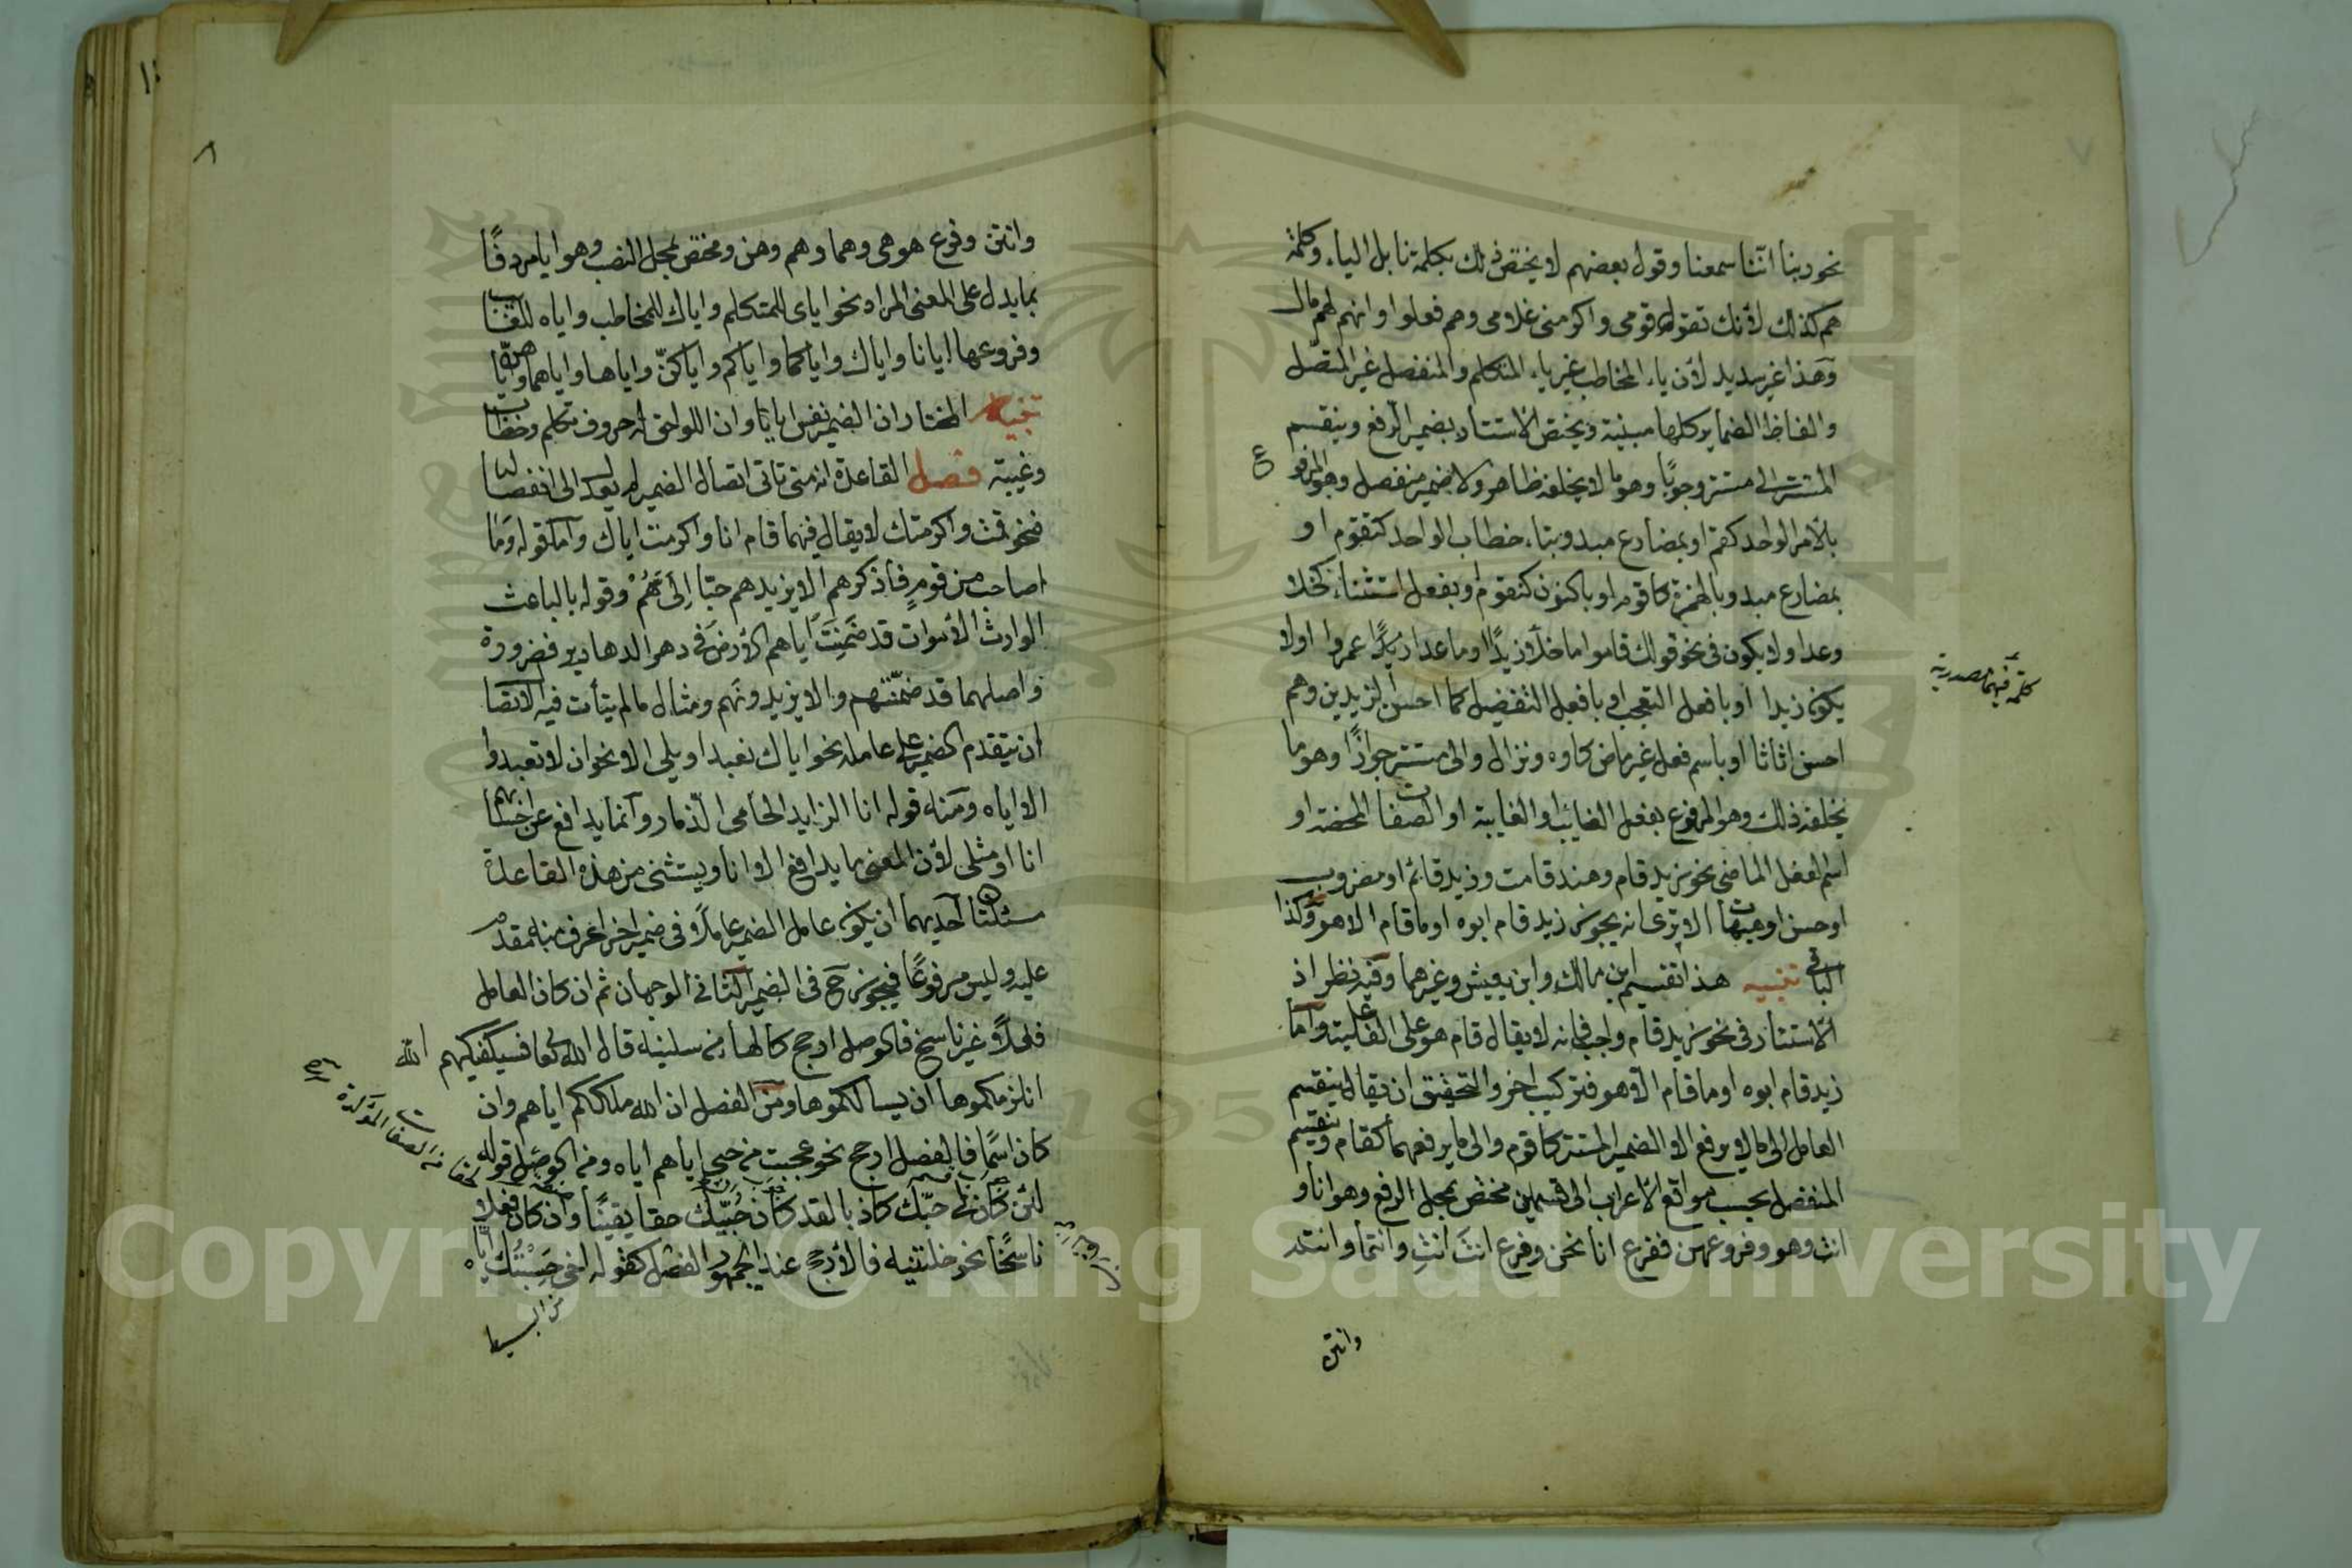 ٧
نحو ربنا اننا سمعنا وقول بعضهم لا يختص ذلك بكلمة نا بل الياء وكلمة
هم كذلك لأنك تقول قومي واكرمني غلامي وهم فعلوا وانهم لهم مال
وهذا غير سديد لأن ياء المخاطبة غير ياء المتكلم والمنفصل غير المتصل
والفاظ الضماير كلها مبنية ويختص الاستتار بضمير الرفع وينقسم
المستتر الى مستتر وجوبًا وهو ما لا يخلفه ظاهر ولا ضمير منفصل وهو المرفوع
بالأمر الواحد كقم او بمضارع مبدو بتاء خطاب الواحد كتقوم او
بمضارع مبدو بالهمزة كاقوم او بالنون كنقوم او بفعل استثناء كخلا
وعدا ولا يكون في نحو قولك قاموا ما خلا زيدًا وما عدا عمروا اولا
يكون زيدا او بافعل التعجب او بافعل التفضيل كما احسن الزيدين وهم
احسن اثاثا او باسم فعل غير ماض كاوه ونزال والى مستتر جوازًا وهو ما
يخلفه ذلك وهو المرفوع بفعل الغائب او الغايبة او الصفات المحضة او
اسم الفعل الماضي نحو زيد قام وهند قامت وزيد قائم او مضروب
او حسن او هيهات الا ترى انه يجوز زيد قام ابوه او ما قام الا هو وكذا
الباقي تنبيه هذا تقسيم ابن مالك وابن يعيش وغيرهما وفيه نظر اذ
الاستتار في نحو زيد قام واجب فانه لا يقال قام هو على الفاعلية واما
زيد قام ابوه او ما قام الا هو فتركيب اخر والتحقيق ان يقال ينقسم
العامل الى ما لا يرفع الا الضمير المستتر كاقوم والى ما يرفعهما كقام وينقسم
المنفصل بحسب مواقع الاعراب الى قسمين مختص بمحل الرفع وهو انا و
انت وهو وفروعهن ففرع انا نحن وفرع انتَ انتِ وانتما وانتم
وانتن
كلمة فيهما مصدرية
٨
وانتن وفرع هو هي وهما وهم وهن ومختص بمحل النصب وهو ايا مردفًا
بما يدل على المعنى المراد نحو اياي للمتكلم واياك للمخاطب واياه للغائب
وفروعها ايانا واياك واياكما واياكم واياكنّ واياها واياهما واياهن
تنبيه المختار ان الضمير نفس ايا وان اللواحق له حروف تكلم وخطاب
وغيبة فصل القاعدة انه متى تاتى اتصال الضمير لم يعدل الى انفصاله
فنحو قمت واكرمتك لا يقال فيهما قام انا واكرمت اياك واما قوله وما
اصاحب من قومٍ فاذكرهم الا يزيدهم حبّا اِلَيَّ هُمُ وقوله بالباعث
الوارث الأموات قد ضَمِنَتْ اياهم الأرضَ في دهر الدهارير فضرورة
واصلهما قد ضمنتهم والا يزيدونهم ومثال ما لم يتأت فيه الاتصال
ان يتقدم الضمير على عامله نحو اياك نعبد او يلي الا نحو ان لا تعبدوا
الا اياه ومنه قوله انا الزايد الحامي الذمار وانما يدافع عن احسابهم
انا او مثلي لأن المعنى ما يدافع الا انا ويستثنى من هذه القاعدة
مسئلتان احديهما ان يكون عامل الضمير عاملًا في ضمير اخر اعرف منه مقدم
عليه وليس مرفوعًا فيجوز ح في الضمير الثاني الوجهان ثم ان كان العامل
فعلًا غير ناسخ فالوصل ارجح كالهاء من سلنيه قال الله تعا فسيكفيكهم الله
انلزمكموها ان يسالكموها ومن الفصل ان الله ملككم اياهم وان
كان اسمًا فالفصل ارجح نحو عجبت من حبي اياهم اياه ومن الوصل قوله
لئن كان حبّك كاذبا لقد كان حُبّيك حقا يقينًا وان كان فعلا
ناسخًا نحو خلتنيه فالأرجح عند الجمهور الفصل كقوله اخي حَسِبْتُك اياه
Copyright © King Saud University
195